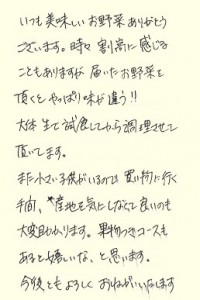 いつも美味しいお野菜ありがとう
ございます。時々割高に感じる
こともありますが届いたお野菜を
頂くとやっぱり味が違う!!
大体生で試食してから調理させて
頂いてます。
まだ小さい子供がいるので買い物に行く
手間、産地を気にしなくて良いのも
大変助かります。果物つきコースも
あると嬉しいな、と思います。
今後ともよろしくおねがいいたします